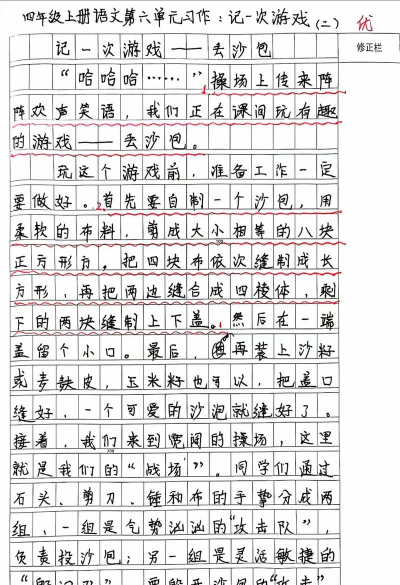 四年级上册语文第六单元习作：记一次游戏（二） 优
修正栏
记一次游戏——丢沙包
“哈哈哈……”，操场上传来阵
阵欢声笑语，我们正在课间玩有趣
的游戏——丢沙包。
玩这个游戏前，准备工作一定
要做好。2首先要自制一个沙包，用
柔软的布料，剪成大小相等的八块
正方形方。把四块布依次缝制成长
方形，再把两边缝合成四棱体，剩
下的两块缝制上下盖。然后在一端
盖留个小口。最后，再装上沙籽
或麦麸皮，玉米籽也可以，把盖口
缝好，一个可爱的沙泡就缝好了。
接着，我们来到宽阔的操场，这里
就是我们的“战场”。同学们通过
石头、剪刀、锤和布的手势分成两
组，一组是气势汹汹的“攻击队”，
负责投沙包；另一组是灵活敏捷的